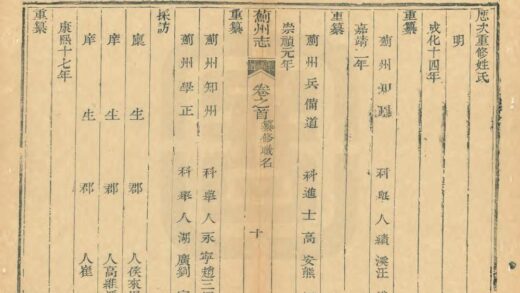 歷次重修姓氏
明
成化十四年
重纂
薊州知 科舉人績溪汪
嘉靖 年
重纂
薊州兵備道 科進士高安熊
崇禎元年
薊州志 卷之首 纂修職名 十
重纂
薊州知州 科舉人永寧趙三
薊州學正 科舉人湖廣劉
採訪
廩生 郡人侯來
庠生 郡人高維
庠生 郡人崔
康熙十七年
重纂